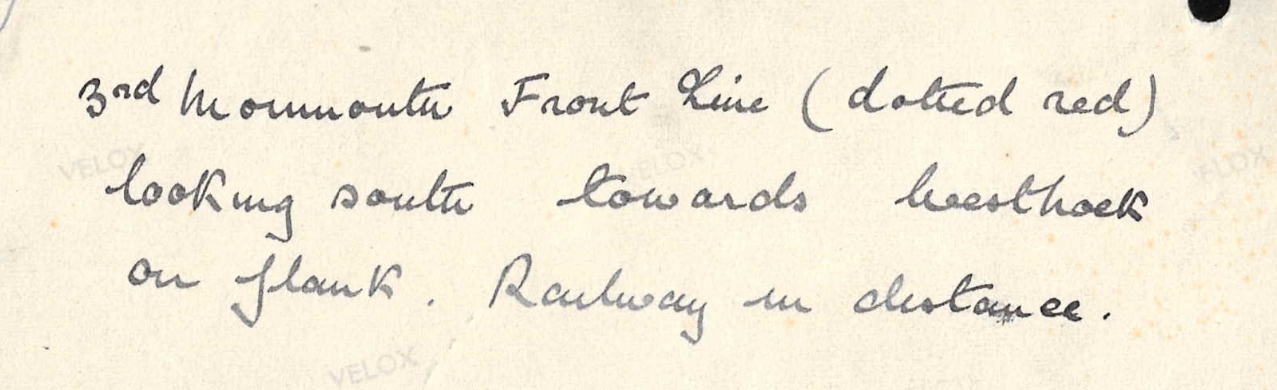 3rd Monmouth Front Line (dotted red)
looking south towards Westhoek
on flank. Railway in distance.
VELOX
VELOX
VELOX
VELOX